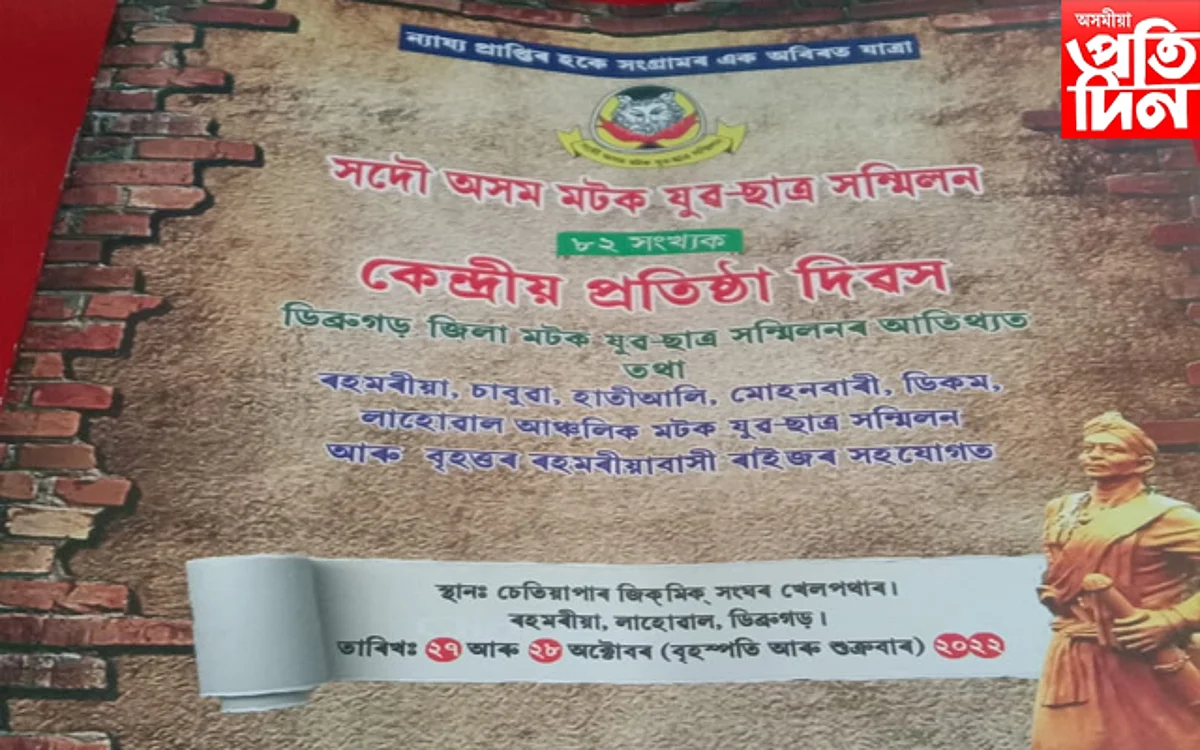 ন্যায্য প্ৰাপ্তিৰ হকে সংগ্ৰামৰ এক অবিৰত যাত্ৰা
অসমীয়া
প্ৰতি
দিন
সদৌ অসম মটক যুৱ-ছাত্ৰ সন্মিলন
৮২ সংখ্যক
কেন্দ্ৰীয় প্ৰতিষ্ঠা দিৱস
ডিব্ৰুগড় জিলা মটক যুৱ-ছাত্ৰ সন্মিলনৰ আতিথ্যত
তথা
ৰহমৰীয়া, চাবুৱা, হাতীআলি, মোহনবাৰী, ডিকম,
লাহোৱাল আঞ্চলিক মটক যুৱ-ছাত্ৰ সন্মিলন
আৰু বৃহত্তৰ ৰহমৰীয়াবাসী ৰাইজৰ সহযোগত
স্থানঃ চেতিয়াপাৰ জিক্‌মিক্‌ সংঘৰ খেলপথাৰ।
ৰহমৰীয়া, লাহোৱাল, ডিব্ৰুগড়।
তাৰিখঃ ২৭ আৰু ২৮ অক্টোবৰ (বৃহস্পতি আৰু শুক্ৰবাৰ) ২০২২